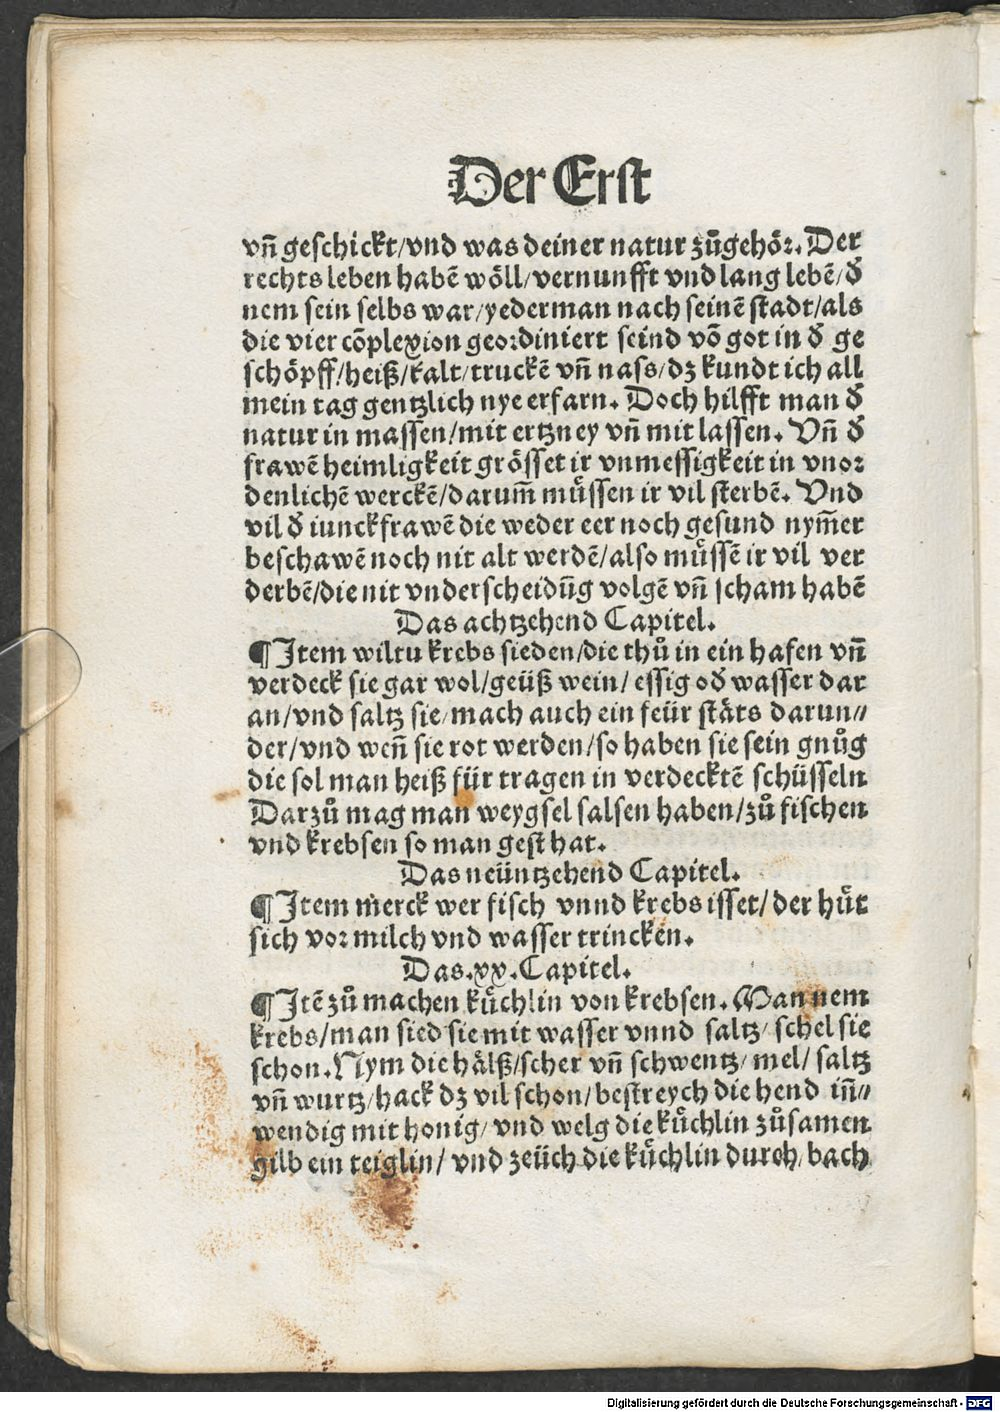 Der Erst
vn̄ geschickt/vnd was deiner natur zůgehöꝛ. Der
rechts leben habē wöll/vernunfft vnd lang lebē/ð
nem sein selbs war/yederman nach seinē stadt/als
die vier cōplexion geoꝛdiniert seind vō got in ð ge
schöpff/heiß/kalt/truckē vn̄ nass/dz kundt ich all
mein tag gentzlich nye erfarn. Doch hilfft man ð
natur in massen/mit ertzney vn̄ mit lassen. Vn̄ ð
frawē heimligkeit grösset ir vnmessigkeit in vnoꝛ
denlichē werckē/darum̄ müssen ir vil sterbē. Vnd
vil ð iunckfrawē die weder eer noch gesund nym̄er
beschawē noch nit alt werdē/also müssē ir vil ver
derbē/die nit vnderscheidūg volgē vn̄ scham habē
Das achtzehend Capitel.
¶Item wiltu krebs sieden/die thů in ein hafen vn̄
verdeck sie gar wol/geüß wein/ essig oð wasser dar
an/vnd saltz sie/mach auch ein feür stäts darun⸗
der/vnd wen̄ sie rot werden/so haben sie sein gnůg
die sol man heiß für tragen in verdecktē schüsseln
Darzů mag man weygsel salsen haben/zů fischen
vnd krebsen so man gest hat.
Das neüntzehend Capitel.
¶Item merck wer fisch vnnd krebs isset/der hüt
sich voꝛ milch vnd wasser trincken.
Das.xx.Capitel.
¶Itē zů machen küchlin von krebsen. Man nem
krebs/man sied sie mit wasser vnnd saltz/ schel sie
schon. Nym die hälß/scher vn̄ schwentz/ mel/ saltz
vn̄ wurtz/hack dz vil schon/bestreych die hend in̄⸗
wendig mit honig/ vnd welg die küchlin zůsamen
gilb ein teiglin/ vnd zeüch die küchlin durch/bach
Digitalisierung gefördert durch die Deutsche Forschungsgemeinschaft - DFG